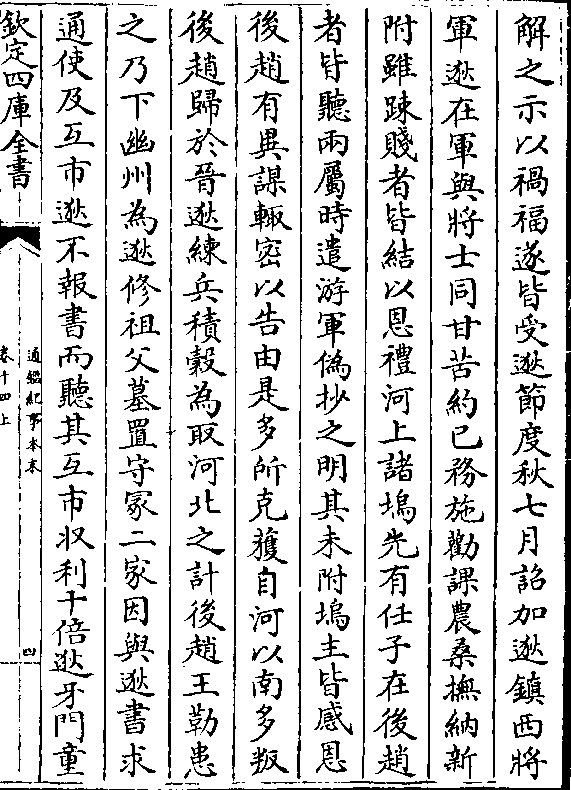 解之示以禍福遂皆受逖節度秋七月詔加逖鎮西將
軍逖在軍與將士同甘苦約已務施勸課農桑撫納新
附雖踈賤者皆結以恩禮河上諸塢先有任子在後趙
者皆聽兩屬時遣游軍偽抄之明其未附塢主皆感恩
後趙有異謀輙密以告由是多所克獲自河以南多叛
後趙歸於晉逖練兵積穀為取河北之計後趙王勒患
之乃下幽州為逖修祖父墓置守冢二家因與逖書求
通使及互市逖不報書而聽其互市収利十倍逖牙門童
欽定四庫全書
通鑑紀事本末
卷十四上
四